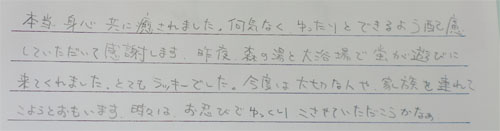 本当、身心共に癒されました。何気なく、ゆったりとできるよう配慮
していただいて感謝します。昨夜、森の湯と大浴場で蛍が遊びに
来てくれました。とてもラッキーでした。今度は大切な人や、家族を連れて
こようとおもいます。時々は、お忍びでゆっくりこさせていただこうかなぁ